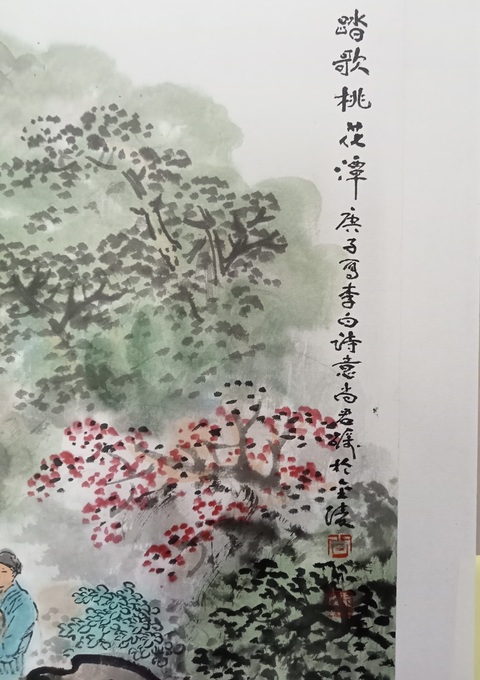 踏歌桃花潭庚子写李白诗意尚君砺於金陵
尚